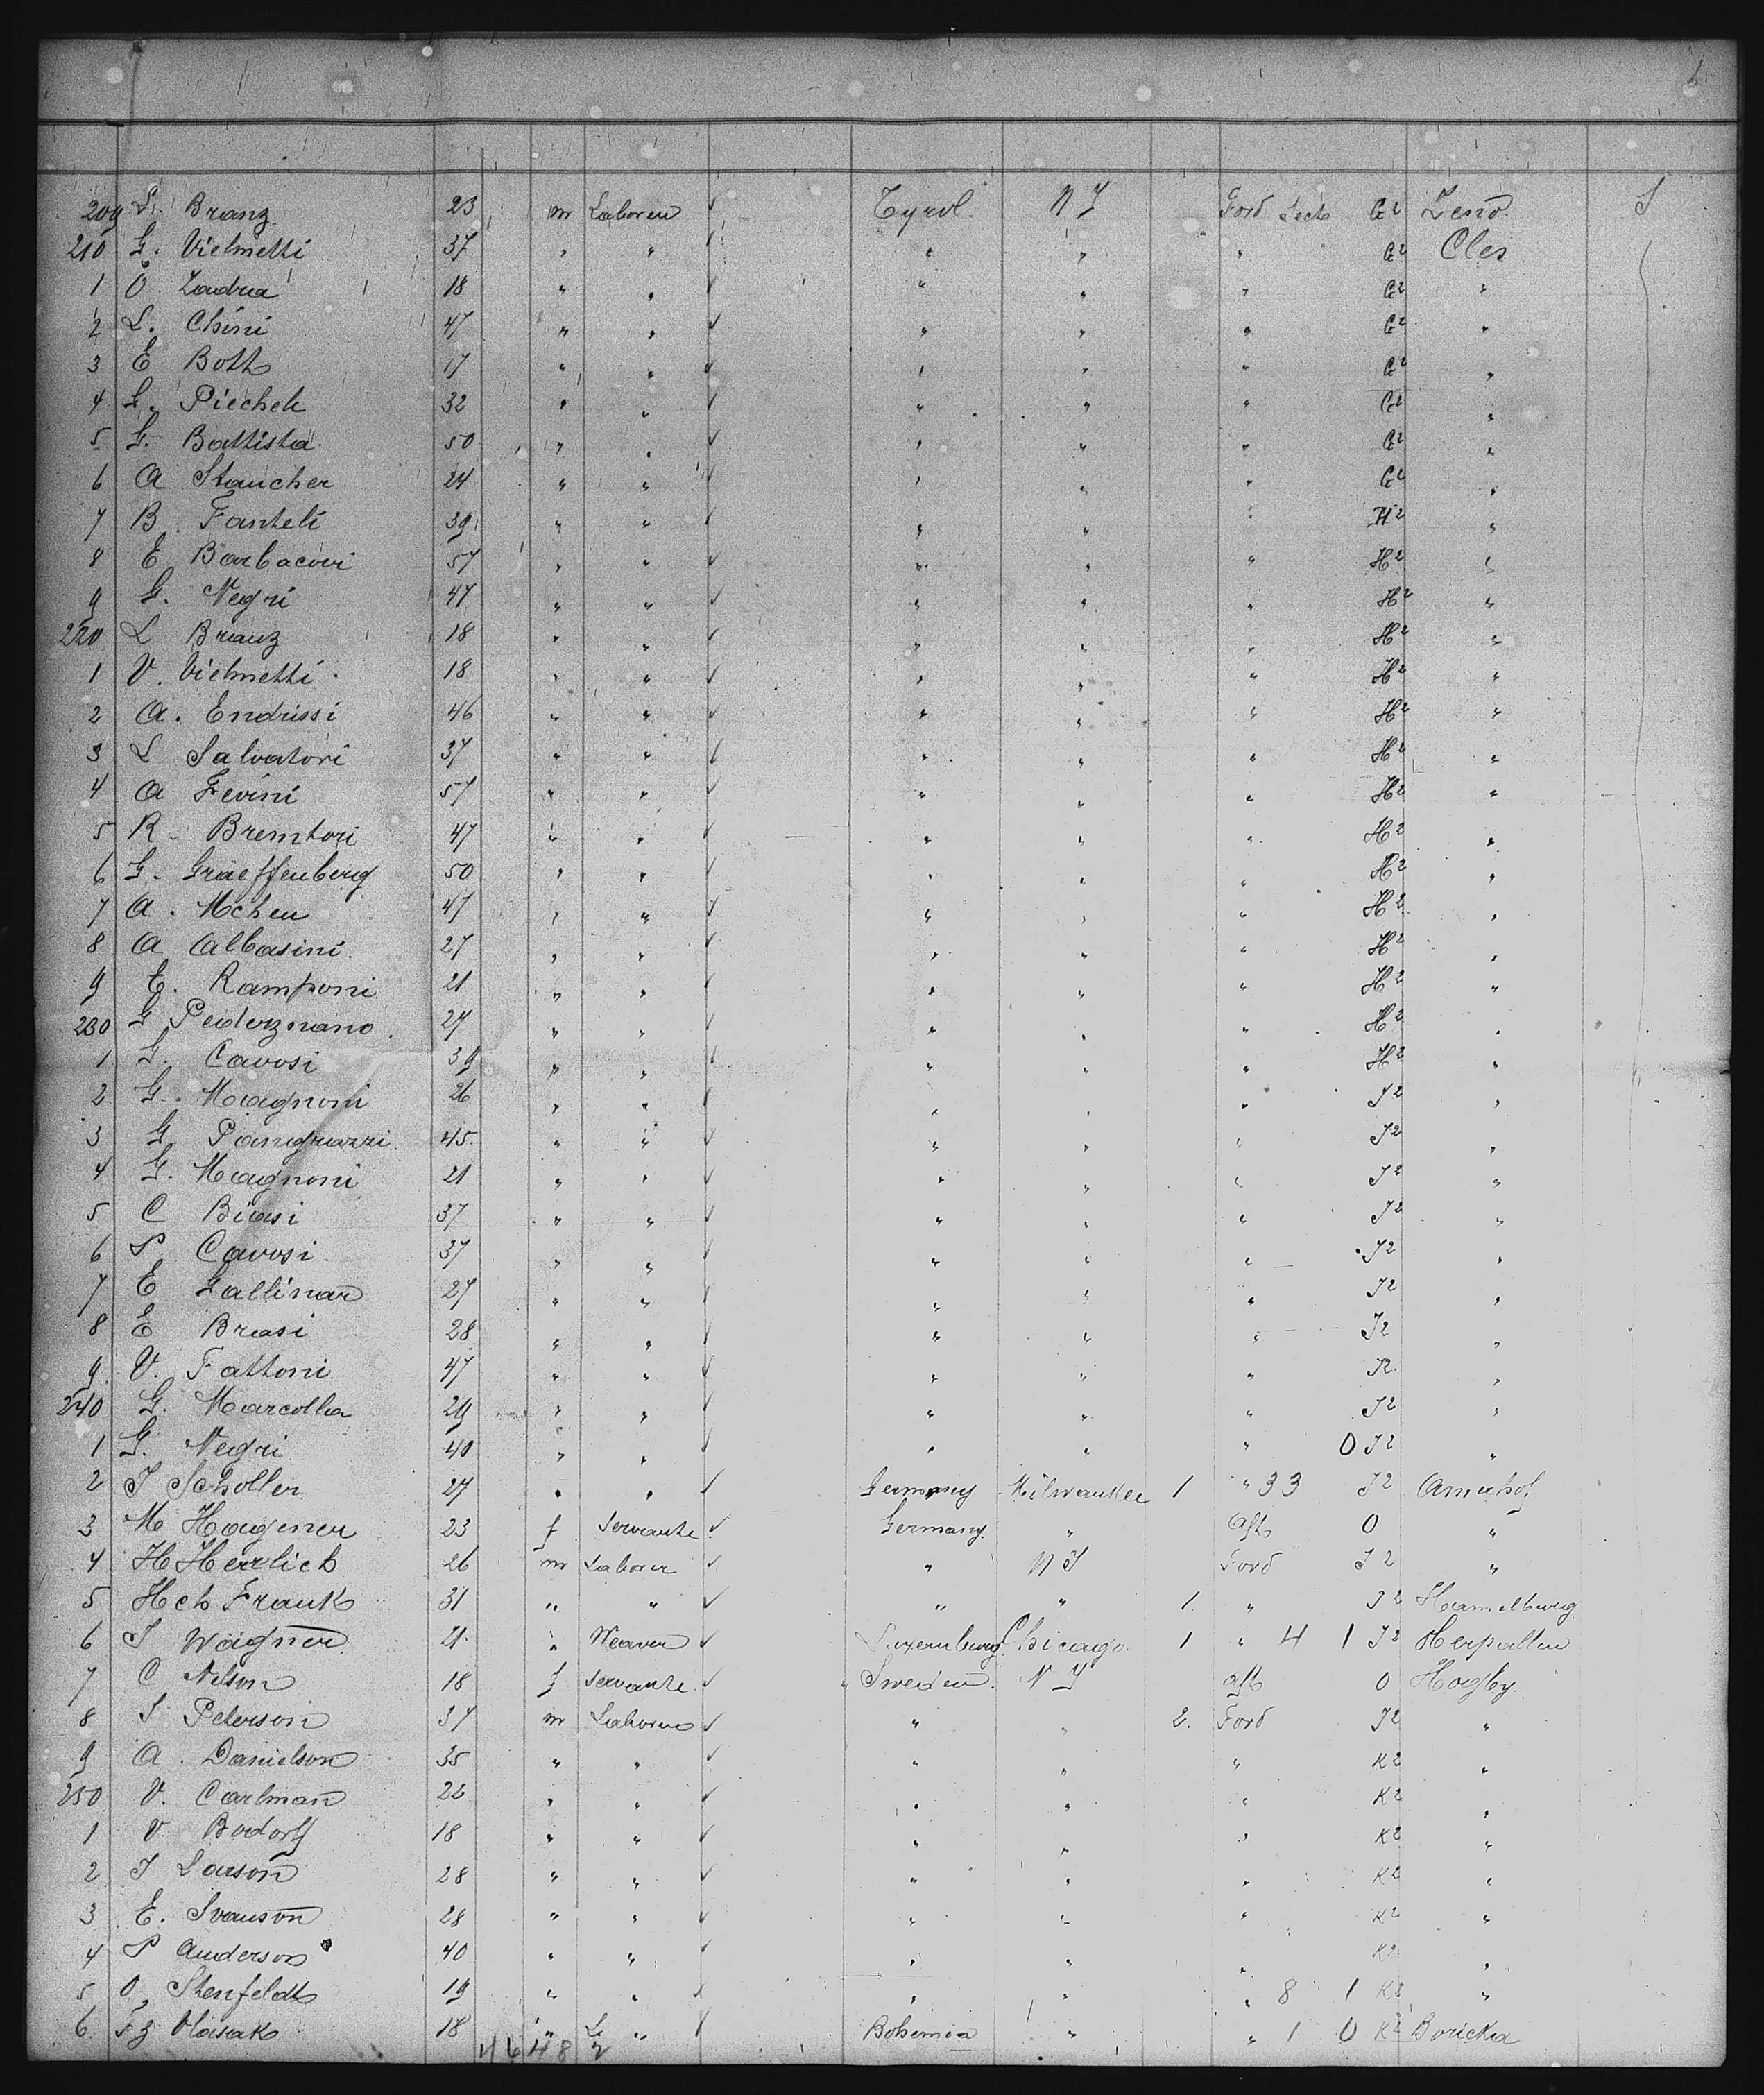 209 L. Branz 23 m Laborer ✓ Tyrol. N Y Ford Deck G2 Zeno. S
210 G. Vielmetti 37 " " ✓ " " " G2 Cles
1 O. Zadra 18 " " ✓ " " " G2 "
2 L. Chini 47 " " ✓ " " " G2 "
3 E Bott 17 " " ✓ " " " G2 "
4 G. Piechele 32 " " ✓ " " " G2 "
5 G. Battista 50 " " ✓ " " " G2 "
6 A Stancher 24 " " ✓ " " " G2 "
7 B. Fanteli 39 " " ✓ " " " H2 "
8 E Barbacovi 57 " " ✓ " " " H2 "
9 G. Negri 47 " " ✓ " " " H2 "
220 L Branz 18 " " ✓ " " " H2 "
1 V. Vielmetti 18 " " ✓ " " " H2 "
2 A. Endrissi 46 " " ✓ " " " H2 "
3 L Salvatori 37 " " ✓ " " " H2 "
4 A Fevini 57 " " ✓ " " " H2 "
5 R. Bremtori 47 " " ✓ " " " H2 "
6 G. Graeffenberg 50 " " ✓ " " " H2 "
7 A. Mchen 47 " " ✓ " " " H2 "
8 A Albasini. 27 " " ✓ " " " H2 "
9 E. Ramponi 21 " " ✓ " " " H2 "
230 G Pederznano. 27 " " ✓ " " " H2 "
1 G. Cavosi 39 " " ✓ " " " H2 "
2 G. Magnoni 26 " " ✓ " " " J2 "
3 G. Pangrazzi. 45. " " ✓ " " " J2 "
4 G. Magnoni 21 " " ✓ " " " J2 "
5 C Biasi 37 " " ✓ " " " J2 "
6 P Cavosi. 37 " " ✓ " " " J2 "
7 E Gallinar 27 " " ✓ " " " J2 "
8 E Brasi 28 " " ✓ " " " J2 "
9. V. Fattoni 47 " " ✓ " " " J2. "
240 G. Marcolla 29 " " ✓ " " " J2 "
1 G. Negri 40 " " ✓ " " " O J2 "
2 J Scholler 27 " " ✓ Germany Milwaukee 1 " 33 J2 Amerhof
3 M Hagener 23 f Servante ✓ Germany. " Aft O "
4 H Herrlich 26 m Laborer ✓ " N Y Ford J2 "
5 Hch Frank 31 " " ✓ " " 1. " J2 Hamelburg
6 J Wagner 21. " Weaver ✓ Luxemburg Chicago. 1 " 4 1 J2 Herpalten
7 C Nelson 18 f Servante ✓ Sweden. N Y Aft O Hogby
8 S Peterson 37 m Laborer ✓ " " 2. Ford J2 "
9 A. Danielson 35 " " ✓ " " " K2 "
250 V. Carlman 22 " " ✓ " " " K2 "
1 V Bodorf 18 " " ✓ " " " K2 "
2 J Larson 28 " " ✓ " " " K2 "
3 E. Svanson 28 " " ✓ " " " K2 "
4 P Anderson 40 " " ✓ " " " K2 "
5 O. Stenfeldt 19 " " ✓ " " " 8 1 K2 "
6. Fz Vlasak 18 " " ✓ Bohemia " " 1 O K2 Boricka
46 48 2